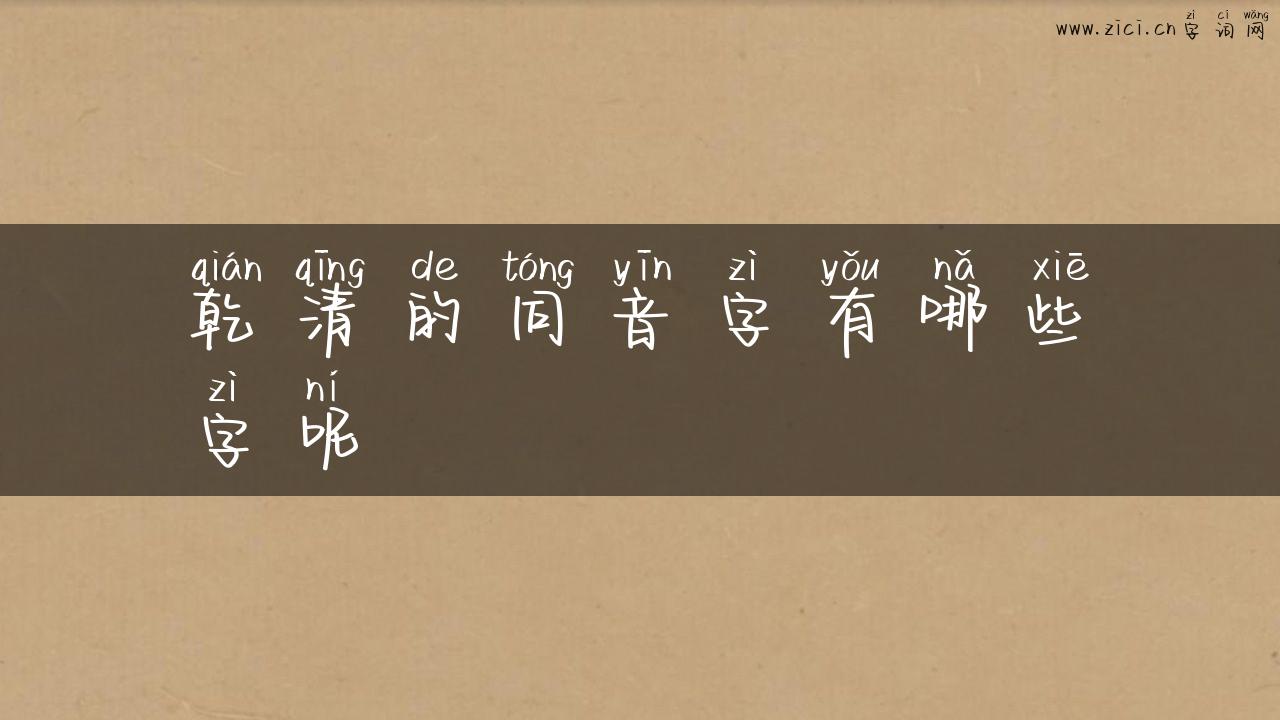 zì cí wǎng
www.zici.cn 字 词 网
qián qīng de tóng yīn zì yǒu nǎ xiē
乾 清 的 同 音 字 有 哪 些
zì ní
字 呢